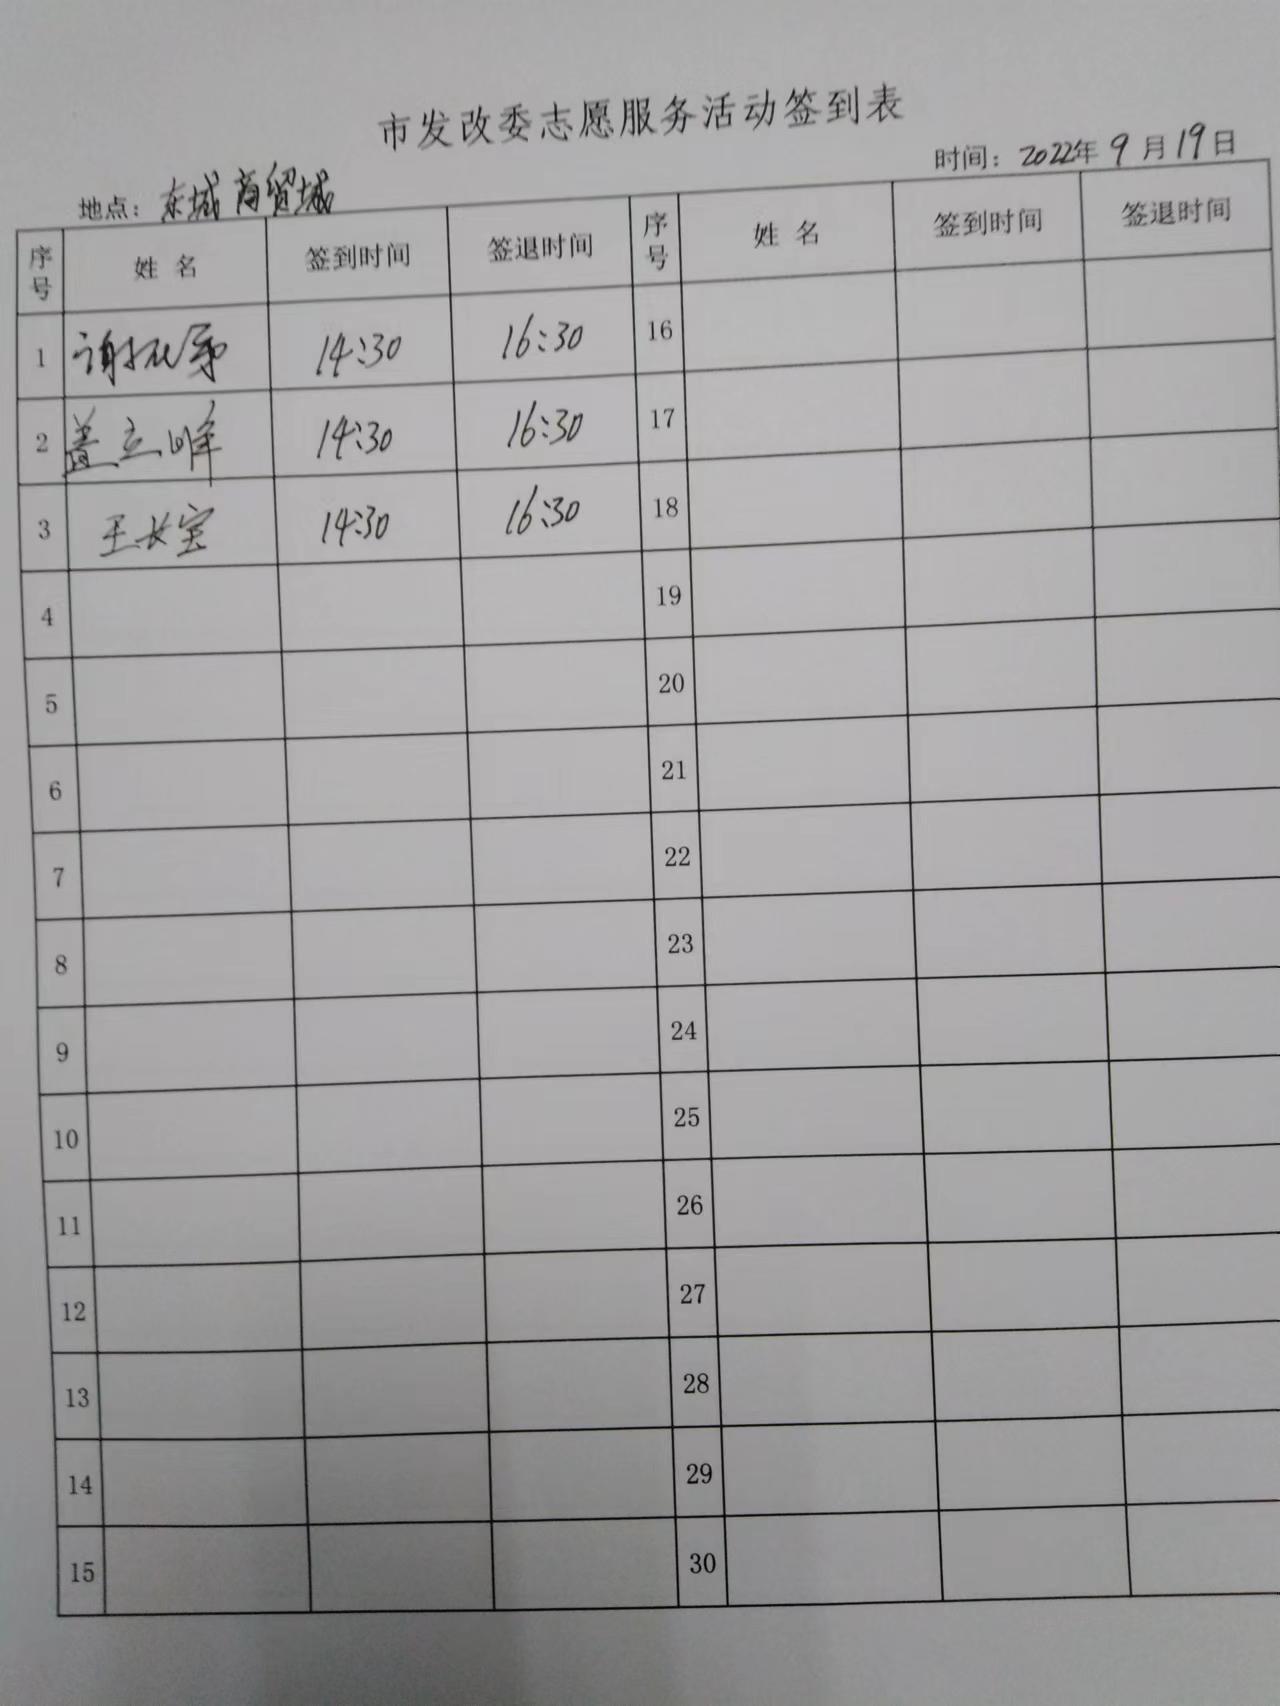 市发改委志愿服务活动签到表
地点：东城商贸城 时间：2022年9月19日
序号 姓名 签到时间 签退时间 序号 姓名 签到时间 签退时间
1 14:30 16:30 16
2 盖立峰 14:30 16:30 17
3 王长宝 14:30 16:30 18
4 19
5 20
6 21
7 22
8 23
9 24
10 25
11 26
12 27
13 28
14 29
15 30